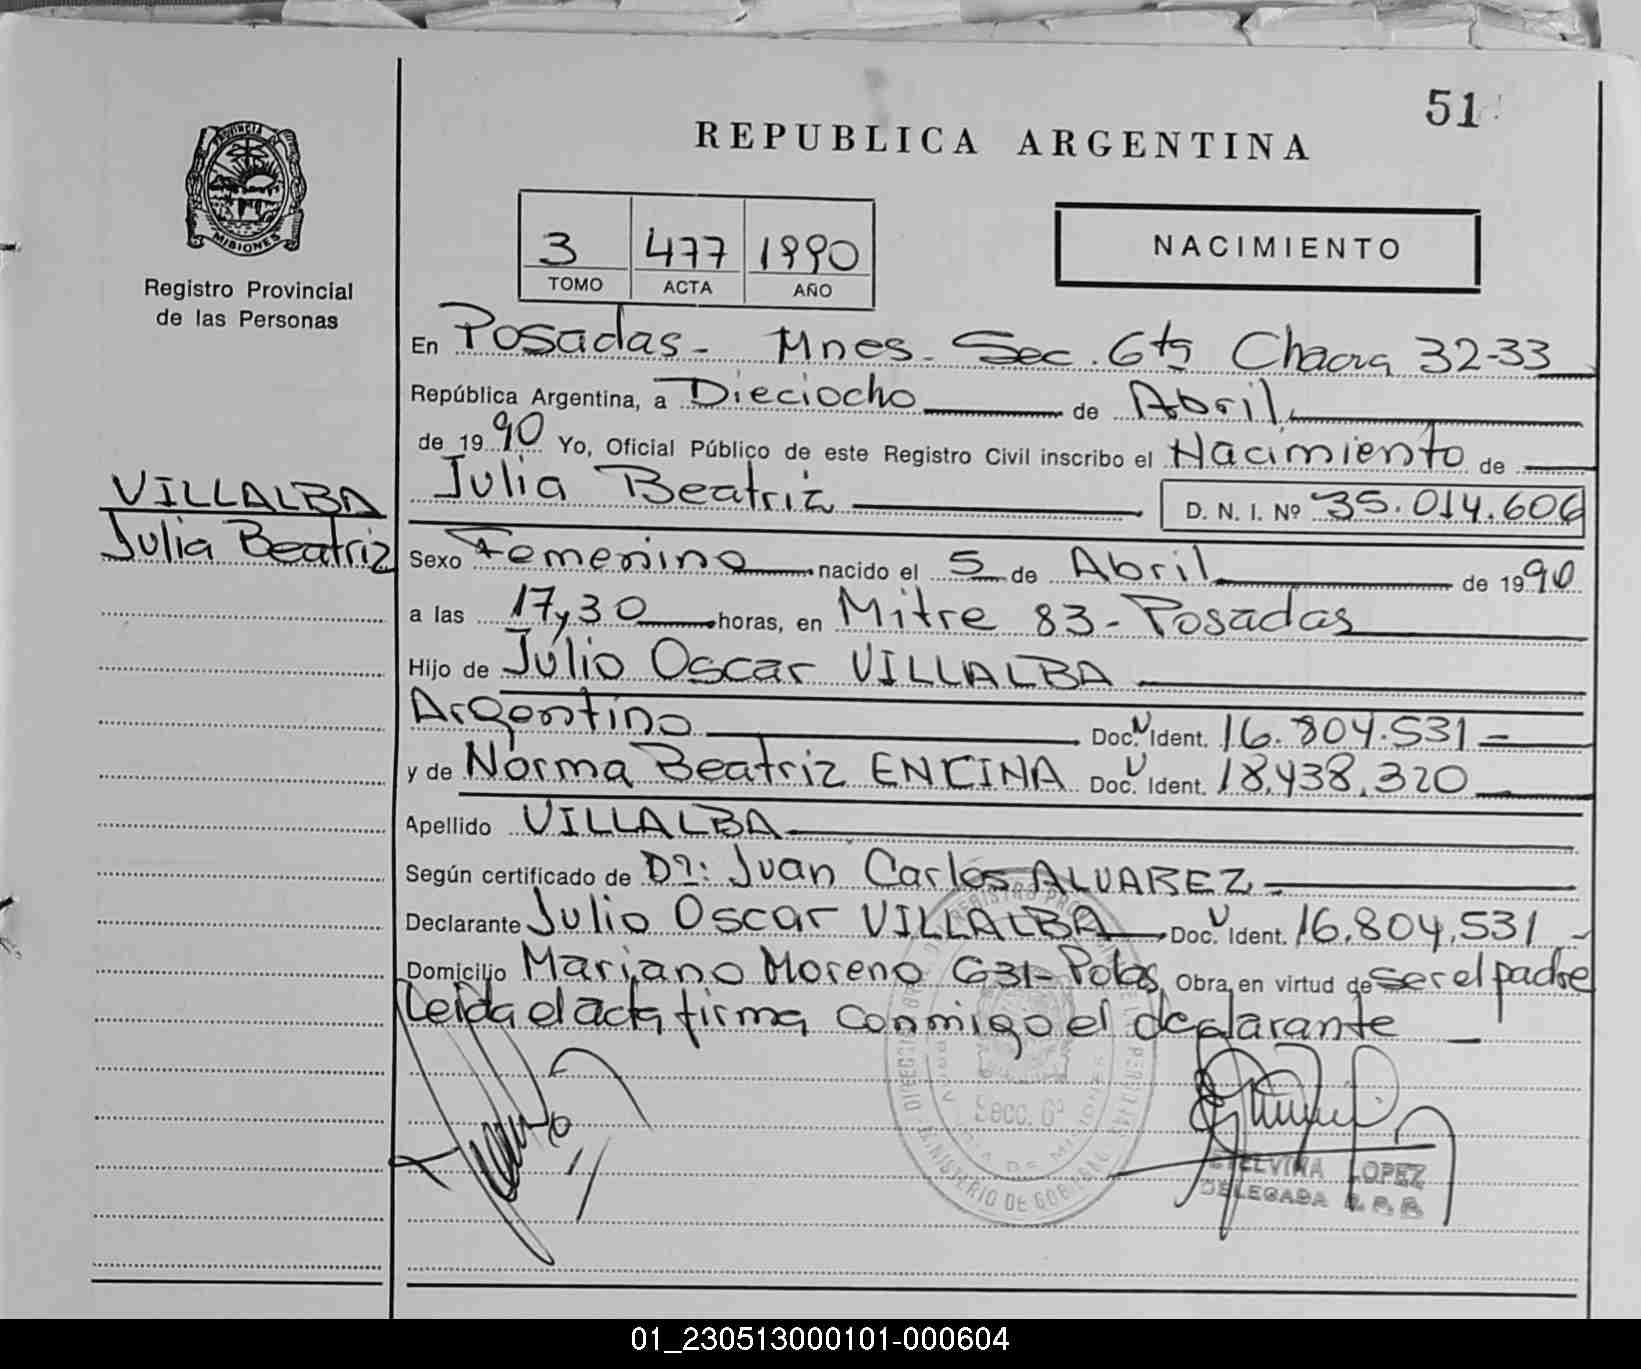 51
REPUBLICA ARGENTINA
PROVINCIA DE
MISIONES
Registro Provincial
de las Personas
3 477 1990
TOMO ACTA AÑO
NACIMIENTO
En Posadas - Mnes - Sec. 6ta Chacra 32-33
República Argentina, a Dieciocho de Abril
de 1990 Yo, Oficial Público de este Registro Civil inscribo el Nacimiento de
Julia Beatriz D. N. I. Nº 35.014.606
VILLALBA
Julia Beatriz
Sexo Femenino nacido el 5 de Abril de 1990
a las 17y30 horas, en Mitre 83 - Posadas
Hijo de Julio Oscar VILLALBA
Argentino Doc. N Ident. 16.804.531
y de Norma Beatriz ENCINA Doc. U Ident. 18.438.320
Apellido VILLALBA
Según certificado de Dr: Juan Carlos ALVAREZ
Declarante Julio Oscar VILLALBA Doc. U Ident. 16.804.531
Domicilio Mariano Moreno 631 - Pdas Obra en virtud de ser el padre
Leida el acta firma conmigo el declarante
Secc. 6ª
MINISTERIO DE GOBIERNO
ETELVINA LOPEZ
DELEGADA
01_230513000101-000604